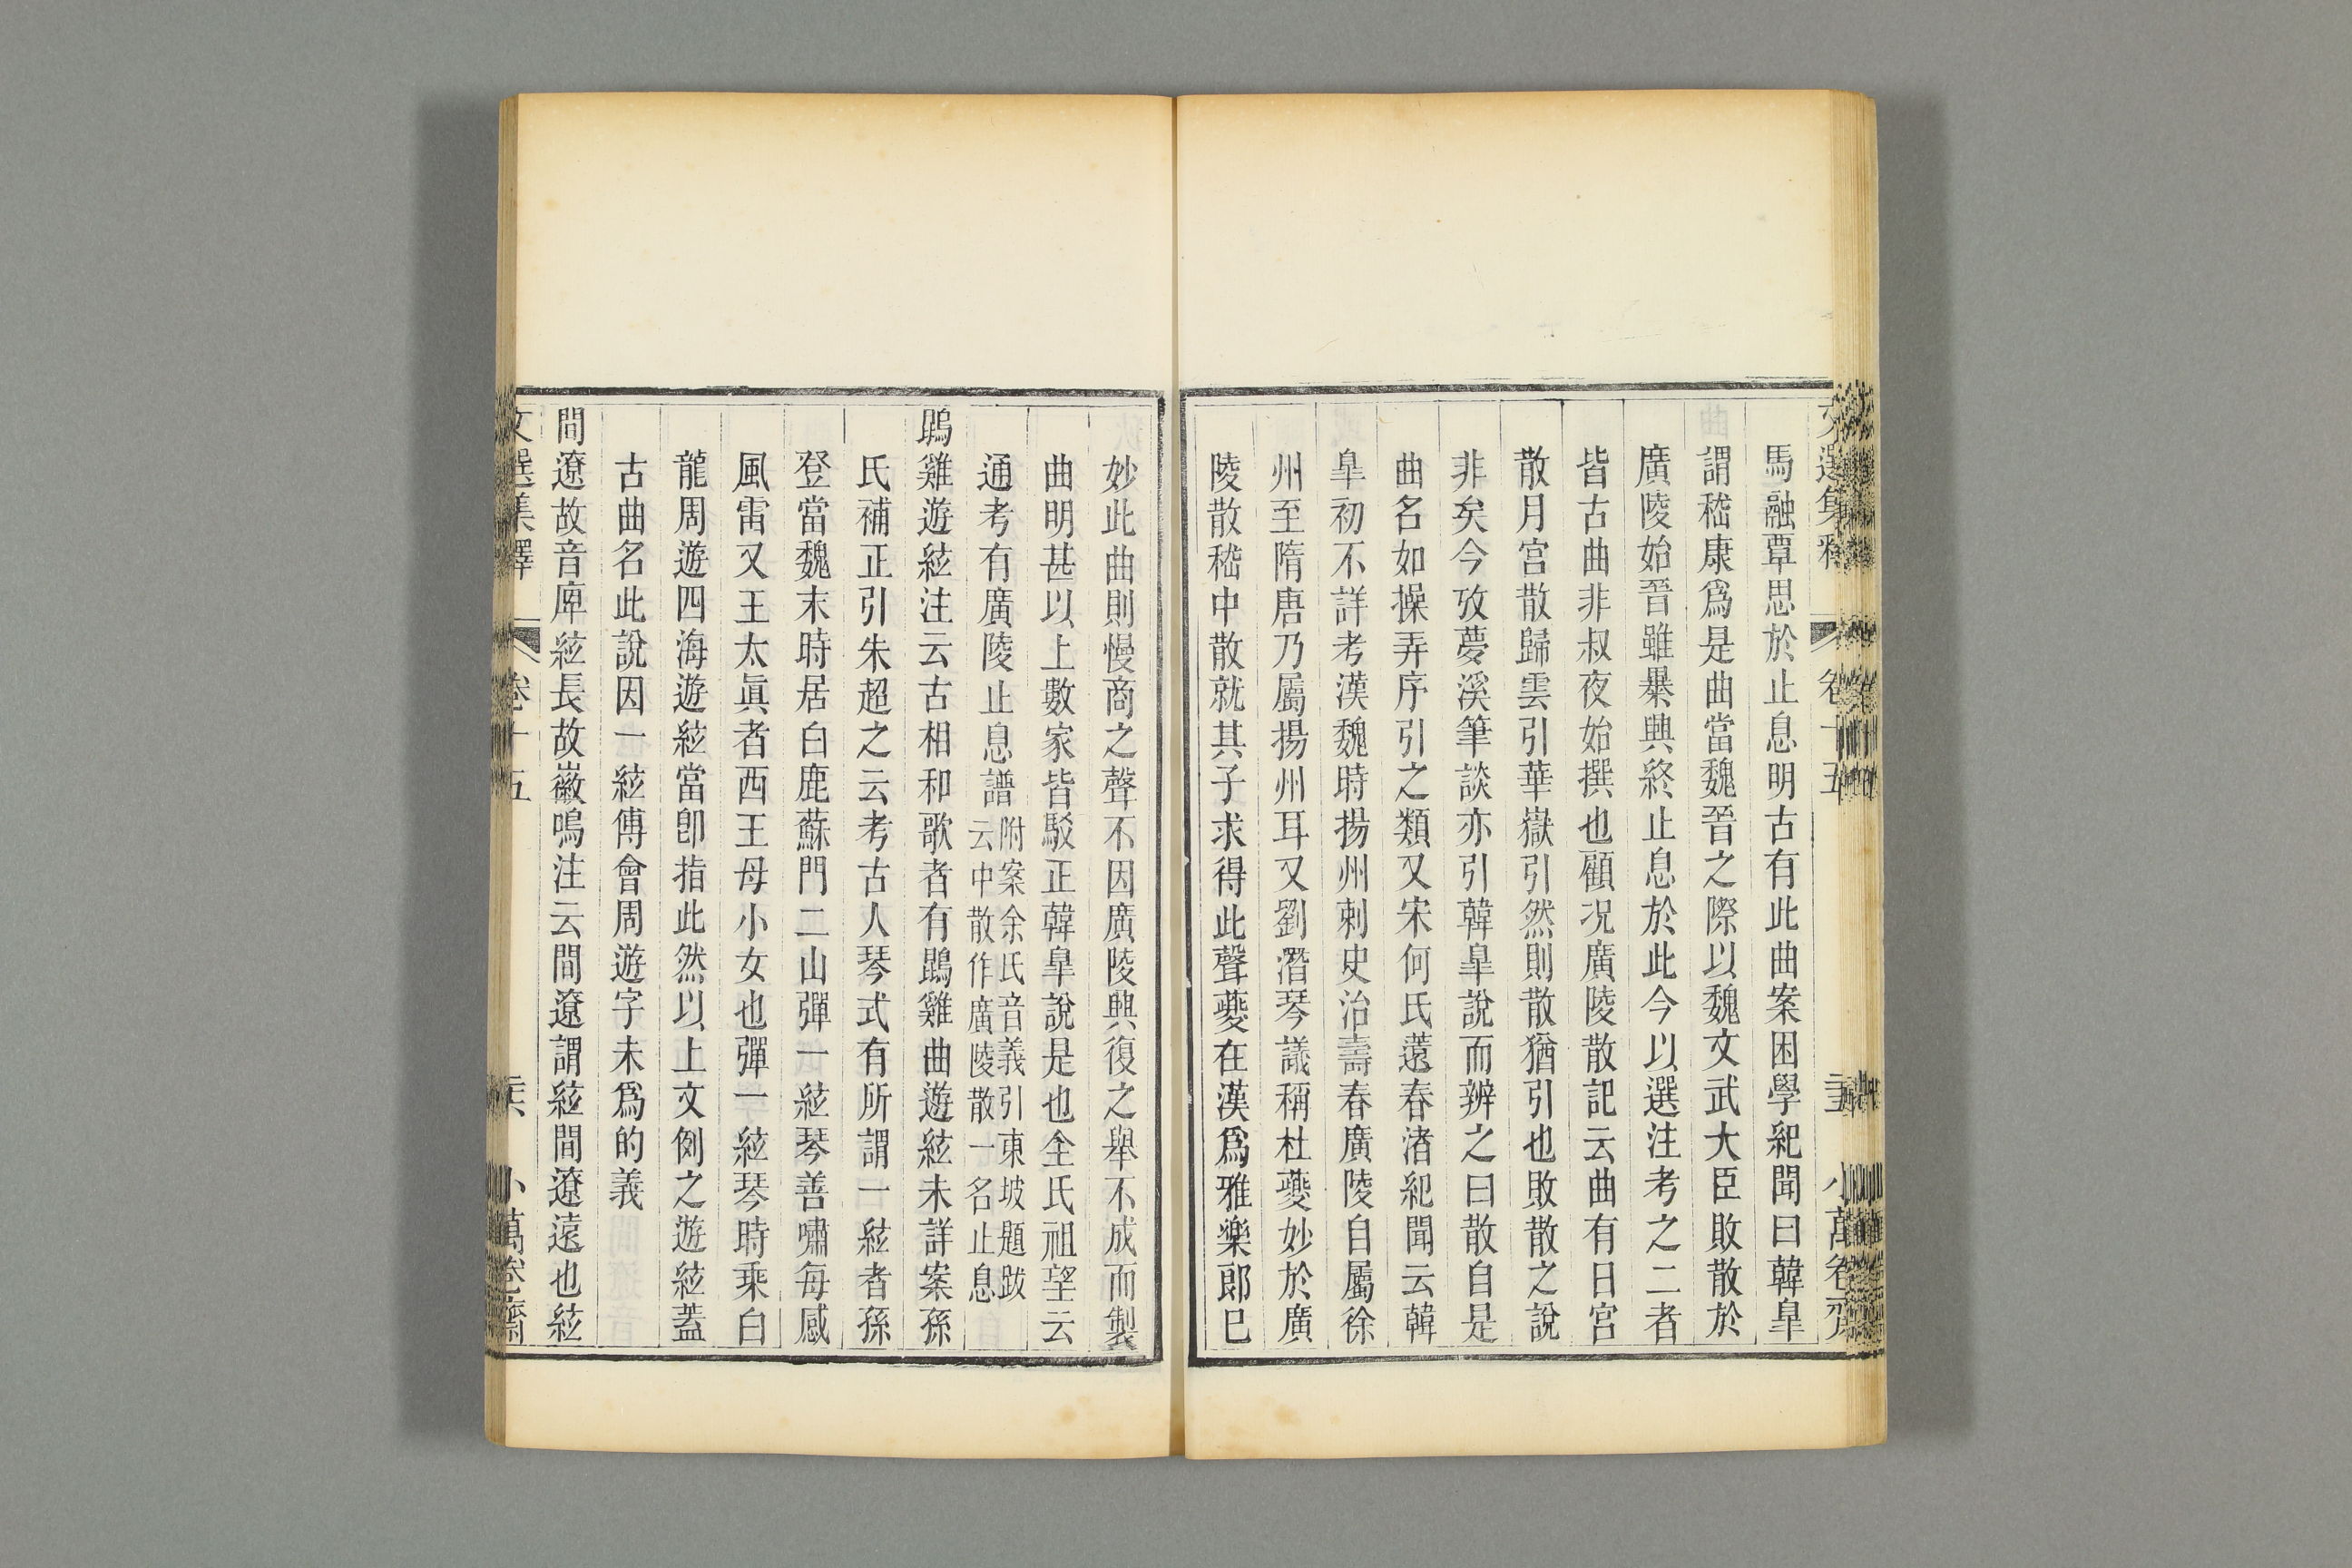 文選集釋 卷十五 小萬卷齋
馬融覃思於止息明古有此曲案困學紀聞曰韓臯
謂嵇康爲是曲當魏晉之際以魏文武大臣敗散於
廣陵始晉雖暴興終止息於此今以選注考之二者
皆古曲非叔夜始撰也顧况廣陵散記云曲有日宮
散月宫散歸雲引華嶽引然則散猶引也敗散之說
非矣今攷夢溪筆談亦引韓臯說而辨之曰散自是
曲名如操弄序引之類又宋何氏薳春渚紀聞云韓
臯初不詳考漢魏時揚州刺史治壽春廣陵自屬徐
州至隋唐乃屬揚州耳又劉潛琴議稱杜夔妙於廣
陵散嵇中散就其子求得此聲夔在漢爲雅樂郎已
妙此曲則慢商之聲不因廣陵興復之舉不成而製
曲明甚以上數家皆駁正韓臯說是也全氏祖望云
通考有廣陵止息譜附案余氏音義引東坡題跋云中散作廣陵散一名止息
鵾雞遊絃注云古相和歌者有鵾雞曲遊絃未詳案孫
氏補正引朱超之云考古人琴式有所謂一絃者孫
登當魏末時居白鹿蘇門二山彈一絃琴善嘯每感
風雷又王太眞者西王母小女也彈一絃琴時乘白
龍周遊四海遊絃當卽指此然以上文例之遊絃蓋
古曲名此說因一絃傅會周遊字未爲的義
間遼故音庳絃長故徽鳴注云間遼謂絃間遼遠也絃
文選集釋 卷十五 小萬卷齋